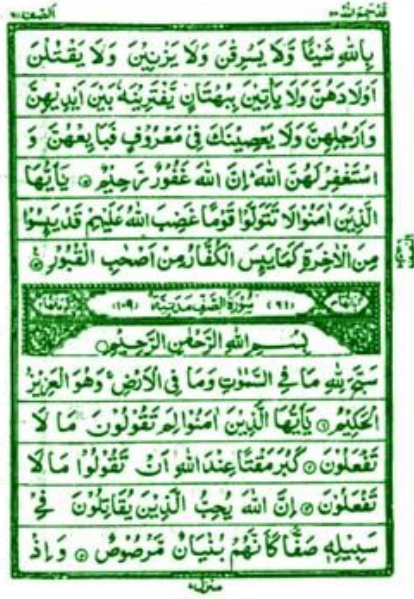 قد سمع الله ٢٨
الصف ٦١
بِاللّٰهِ شَيْئًا وَّلَا يَسْرِقْنَ وَلَا يَزْنِيْنَ وَلَا يَقْتُلْنَ
اَوْلَادَهُنَّ وَلَا يَاْتِيْنَ بِبُهْتَانٍ يَّفْتَرِيْنَهٗ بَيْنَ اَيْدِيْهِنَّ
وَاَرْجُلِهِنَّ وَلَا يَعْصِيْنَكَ فِيْ مَعْرُوْفٍ فَبَايِعْهُنَّ وَ
اسْتَغْفِرْ لَهُنَّ اللّٰهَ ؕ اِنَّ اللّٰهَ غَفُوْرٌ رَّحِيْمٌ ۝ يٰۤاَيُّهَا
الَّذِيْنَ اٰمَنُوْا لَا تَتَوَلَّوْا قَوْمًا غَضِبَ اللّٰهُ عَلَيْهِمْ قَدْ يَئِسُوْا
مِنَ الْاٰخِرَةِ كَمَا يَئِسَ الْكُفَّارُ مِنْ اَصْحٰبِ الْقُبُوْرِ ۝
(٦١) سُوْرَةُ الصَّفِّ مَدَنِيَّةٌ (١٠٩)
بِسْمِ اللّٰهِ الرَّحْمٰنِ الرَّحِيْمِ
سَبَّحَ لِلّٰهِ مَا فِي السَّمٰوٰتِ وَمَا فِي الْاَرْضِ ۚ وَهُوَ الْعَزِيْزُ
الْحَكِيْمُ ۝ يٰۤاَيُّهَا الَّذِيْنَ اٰمَنُوْا لِمَ تَقُوْلُوْنَ مَا لَا
تَفْعَلُوْنَ ۝ كَبُرَ مَقْتًا عِنْدَ اللّٰهِ اَنْ تَقُوْلُوْا مَا لَا
تَفْعَلُوْنَ ۝ اِنَّ اللّٰهَ يُحِبُّ الَّذِيْنَ يُقَاتِلُوْنَ فِيْ
سَبِيْلِهٖ صَفًّا كَاَنَّهُمْ بُنْيَانٌ مَّرْصُوْصٌ ۝ وَاِذْ
منزل